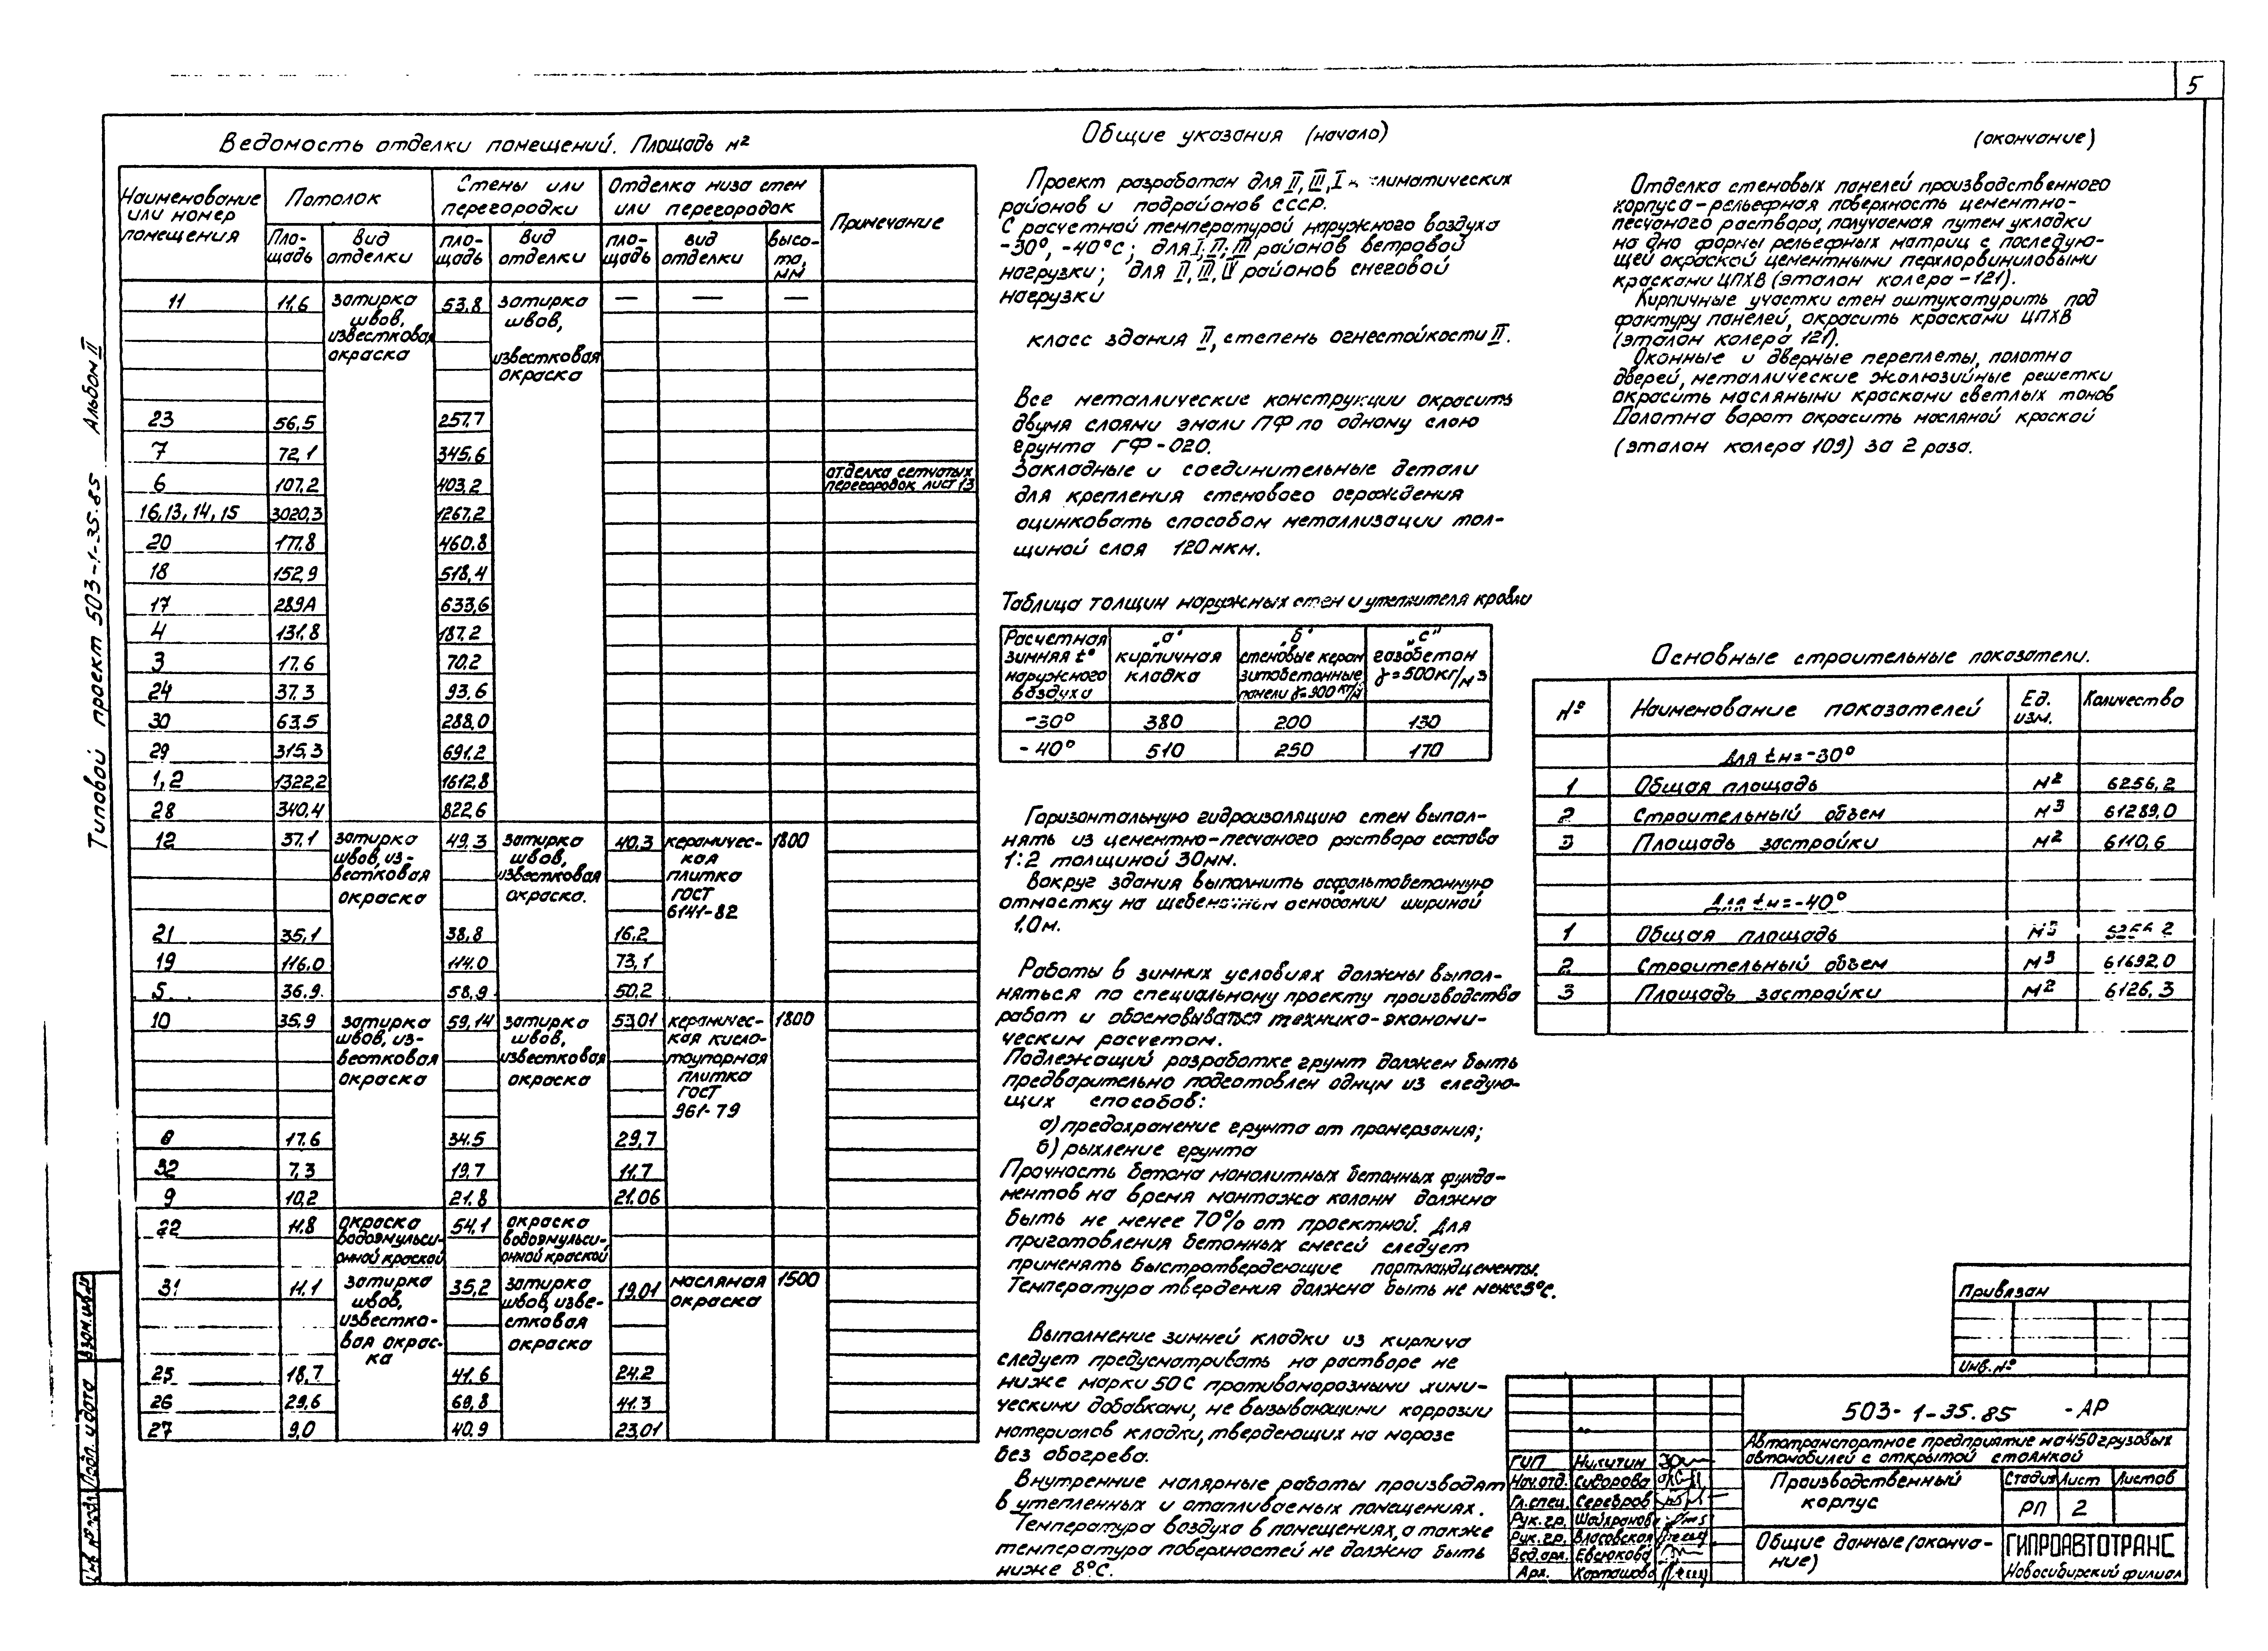 5
Типовой проект 503-1-35.85 Альбом II
Ведомость отделки помещений. Площадь м²
Наименование или номер помещения | Потолок | Стены или перегородки | Отделка низа стен или перегородок | Примечание
Площадь | Вид отделки | площадь | Вид отделки | площадь | вид отделки | высота, мм
11 | 11,6 | затирка швов, известковая окраска | 53,8 | затирка швов, известковая окраска | — | — | —
23 | 56,5 | 257.7
7 | 72,1 | 345.6
6 | 107,2 | 403,2 | отделка сетчатых перегородок лист 13
16,13,14,15 | 3020,3 | 1267,2
20 | 177.8 | 460.8
18 | 152,9 | 518,4
17 | 289,4 | 633,6
4 | 131,8 | 187.2
3 | 17.6 | 70.2
24 | 37.3 | 93.6
30 | 63.5 | 288,0
29 | 315,3 | 691.2
1, 2 | 1322,2 | 1612,8
28 | 340,4 | 822,6
12 | 37.1 | затирка швов, известковая окраска | 49,3 | затирка швов, известковая окраска. | 40,3 | керамическая плитка ГОСТ 6141-82 | 1800
21 | 35,1 | 38,8 | 16.2
19 | 116.0 | 114.0 | 73,1
5 | 36.9 | 58,9 | 50,2
10 | 35,9 | затирка швов, известковая окраска | 59,14 | затирка швов, известковая окраска | 53.01 | керамическая кислотоупорная плитка ГОСТ 961-79 | 1800
17.6 | 34.5 | 29,7
32 | 7,3 | 19,7 | 11.7
9 | 10,2 | 21.8 | 21.06
22 | 11.8 | окраска водоэмульсионной краской | 54,1 | окраска водоэмульсионной краской
31 | 11.1 | затирка швов, известковая окраска | 35,2 | затирка швов, известковая окраска | 19.01 | масляная окраска | 1500
25 | 18,7 | 41.6 | 24.2
26 | 29,6 | 69,8 | 41.3
27 | 9,0 | 40.9 | 23.01
Общие указания (начало)
Проект разработан для II, III, I климатических
районов и подрайонов СССР.
С расчетной температурой наружного воздуха
-30°, -40°С; для I, II, III районов ветровой
нагрузки; для II, III, IV районов снеговой
нагрузки
класс здания II, степень огнестойкости II.
Все металлические конструкции окрасить
двумя слоями эмали ПФ по одному слою
грунта ГФ-020.
Закладные и соединительные детали
для крепления стенового ограждения
оцинковать способом металлизации тол-
щиной слоя 120мкм.
Таблица толщин наружных стен и утеплителя кровли
Расчетная зимняя t° наружного воздуха | "а" кирпичная кладка | "б" стеновые керамзитобетонные панели γ=900 кг/м³ | "с" газобетон γ=500кг/м³
-30° | 380 | 200 | 130
-40° | 510 | 250 | 170
Горизонтальную гидроизоляцию стен выпол-
нять из цементно-песчаного раствора состава
1:2 толщиной 30мм.
Вокруг здания выполнить асфальтобетонную
отмостку на щебеночном основании шириной
1,0м.
Работы в зимних условиях должны выпол-
няться по специальному проекту производства
работ и обосновываться технико-экономи-
ческим расчетом.
Подлежащий разработке грунт должен быть
предварительно подготовлен одним из следую-
щих способов:
а) предохранение грунта от промерзания;
б) рыхление грунта
Прочность бетона монолитных бетонных фунда-
ментов на время монтажа колонн должна
быть не менее 70% от проектной. Для
приготовления бетонных смесей следует
применять быстротвердеющие портландцементы.
Температура твердения должна быть не менее 5°С.
Выполнение зимней кладки из кирпича
следует предусматривать на растворе не
ниже марки 50 С противоморозными хими-
ческими добавками, не вызывающими коррозии
материалов кладки, твердеющих на морозе
без обогрева.
Внутренние малярные работы производят
в утепленных и отапливаемых помещениях.
Температура воздуха в помещениях, а также
температура поверхностей не должна быть
ниже 8°С.
(окончание)
Отделка стеновых панелей производственного
корпуса-рельефная поверхность цементно-
песчаного раствора, получаемая путем укладки
на дно формы рельефных матриц с последую-
щей окраской цементными перхлорвиниловыми
красками ЦПХВ (эталон колера -121).
Кирпичные участки стен оштукатурить под
фактуру панелей, окрасить красками ЦПХВ
(эталон колера 121).
Оконные и дверные переплеты, полотна
дверей, металлические жалюзийные решетки
окрасить масляными красками светлых тонов
Полотна ворот окрасить масляной краской
(эталон колера 109) за 2 раза.
Основные строительные показатели.
№ | Наименование показателей | Ед. изм. | Количество
Для tн=-30°
1 | Общая площадь | м² | 6256,2
2 | Строительный объем | м³ | 61289,0
3 | Площадь застройки | м² | 6110,6
Для tн=-40°
1 | Общая площадь
2 | Строительный объем | м³ | 61692,0
3 | Площадь застройки | м² | 6126,3
Привязан
Инв.№
503-1-35.85 -АР
Автотранспортное предприятие на 450 грузовых
автомобилей с открытой стоянкой
ГИП Никитин
Нач.отд. Сидорова
Гл.спец. Серебров
Рук.гр.
Рук.гр. Власовская
Вед.арх. Евсюкова
Арх. Карташова
Производственный корпус
Стадия | Лист | Листов
РП | 2
Общие данные (оконча-
ние)
ГИПРОАВТОТРАНС
Новосибирский филиал
Взам.инв.№
Подп. и дата